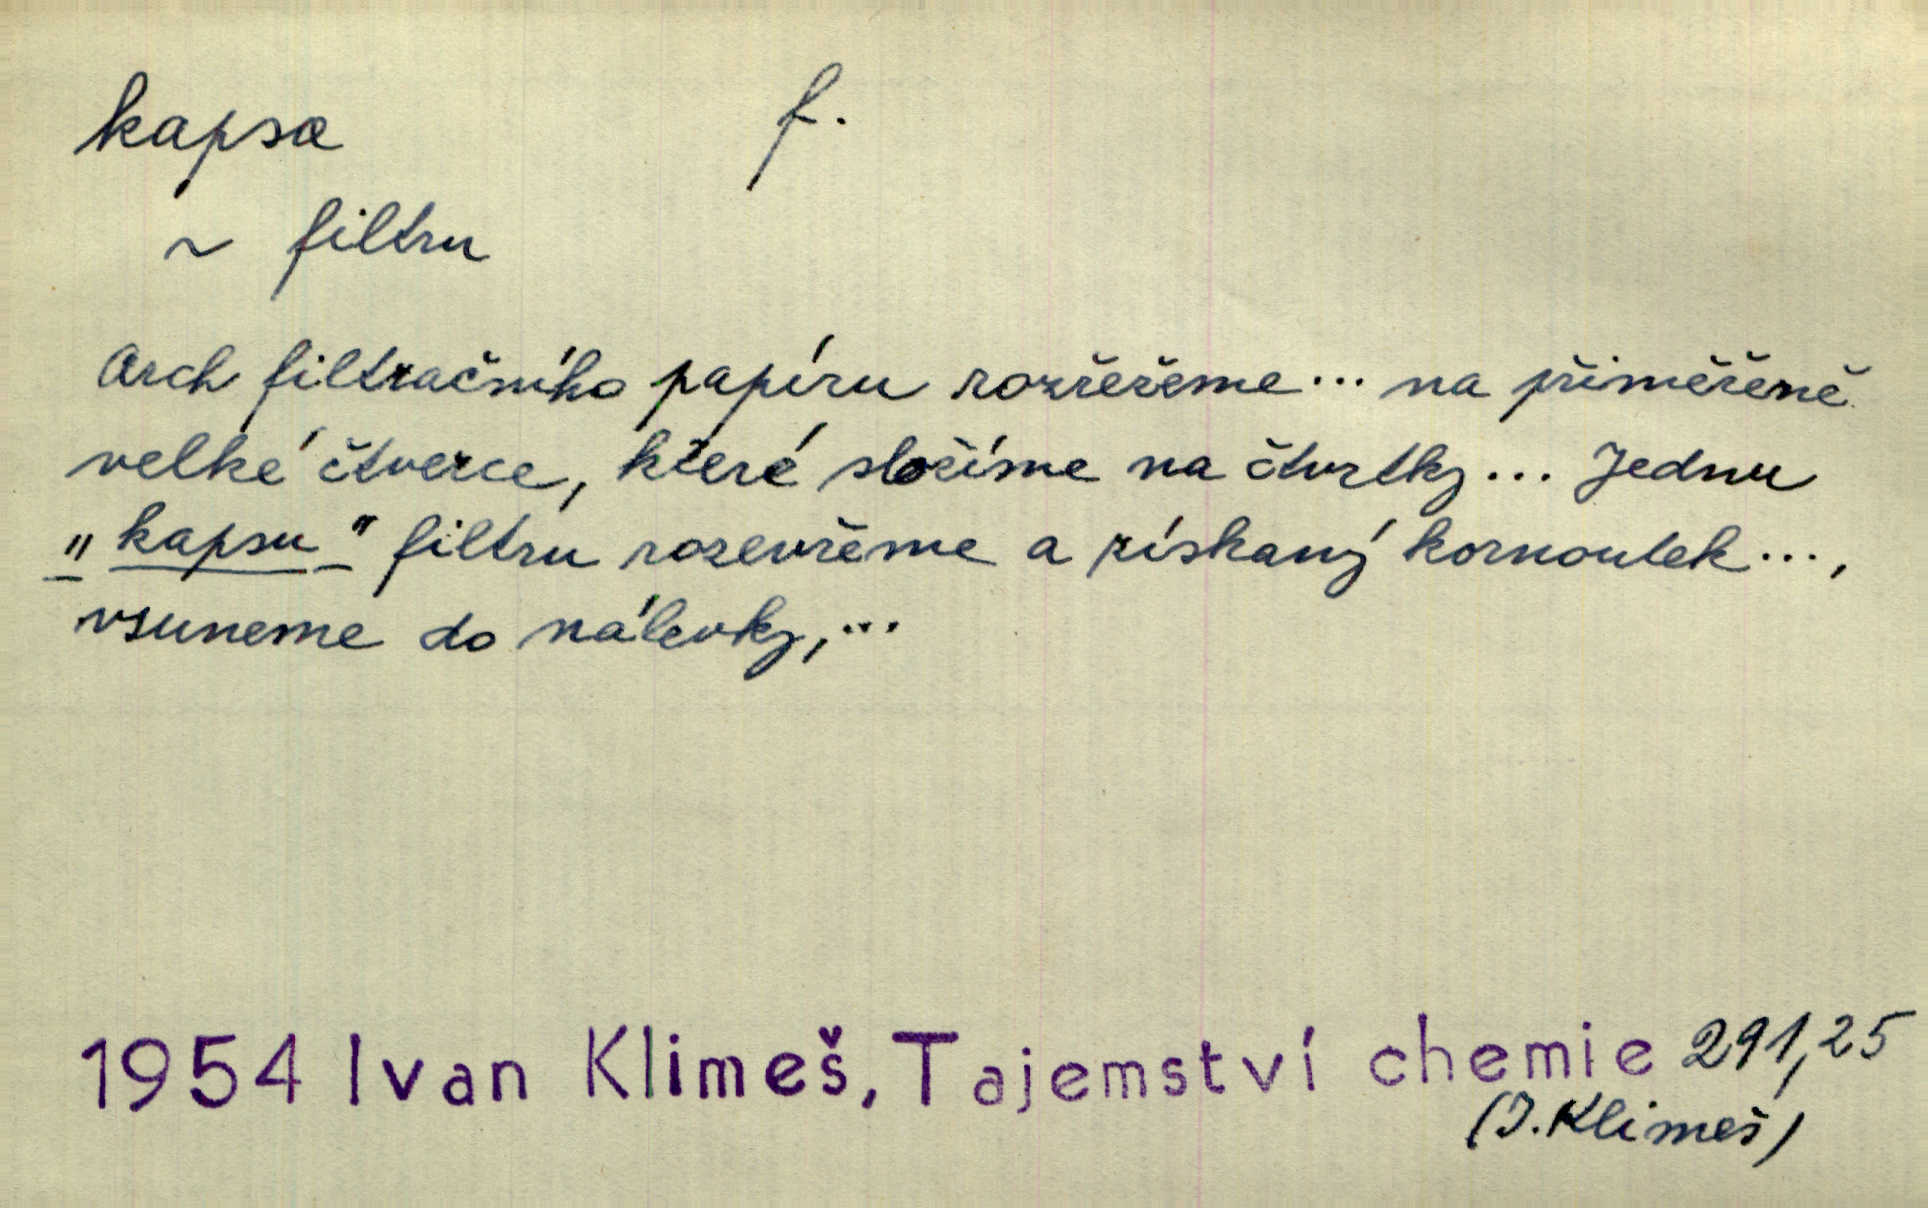 kapsa f.
~ filtru
Arch filtračního papíru rozřežeme... na přiměřeně
velké čtverce, které složíme na čtvrtky... Jednu
„kapsu" filtru rozevřeme a získaný kornoutek...,
vsuneme do nálevky,...
1954 Ivan Klimeš, Tajemství chemie 291,25
(I. Klimeš)